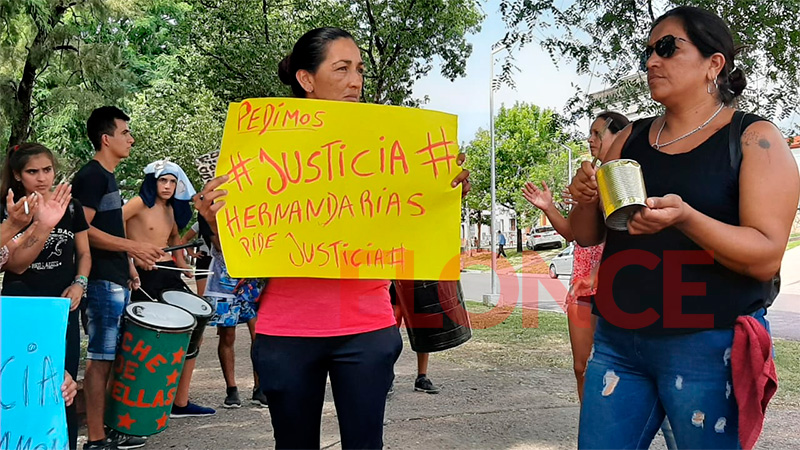 PEDIMOS
#JUSTICIA#
HERNANDARIAS
PIDE JUSTICIA#
CHE DE
ELLAS
CIA
ELONCE